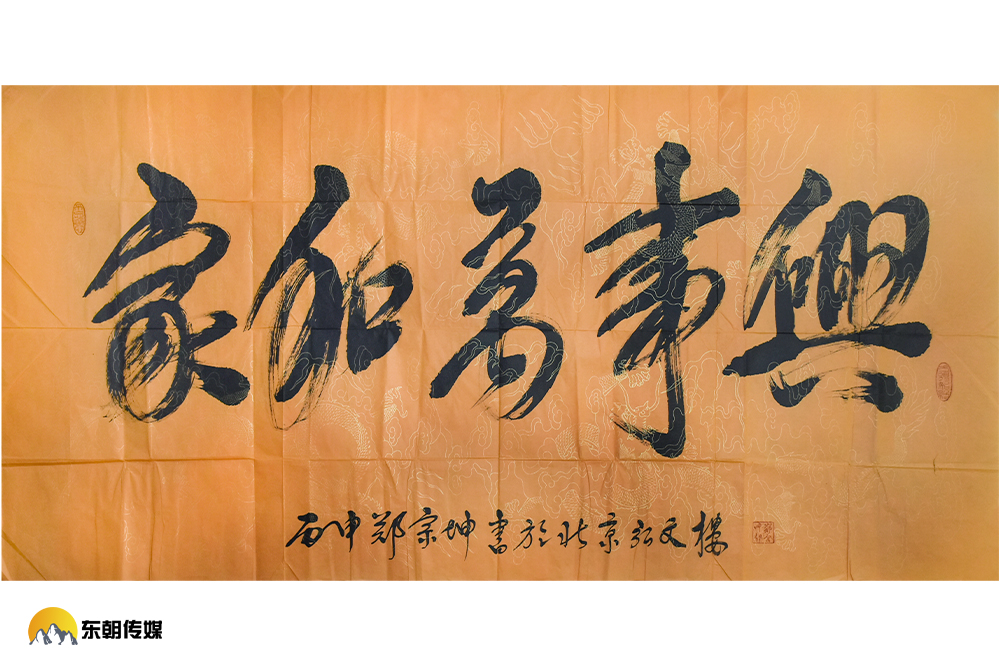 家和萬事興
丙申鄭宗坤書於北京弘文樓
东朝传媒